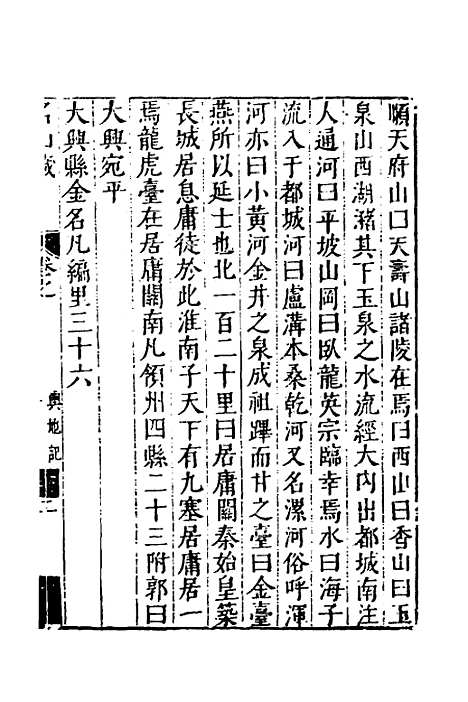 順天府山曰天壽山諸陵在焉曰西山曰香山曰玉
泉山西湖瀦其下玉泉之水流經大内出都城南注
人通河曰平坡山岡曰臥龍英宗臨幸焉水曰海子
流入于都城河曰盧溝本桑乾河又名漯河俗呼渾
河亦曰小黃河金井之泉成祖蹕而甘之臺曰金臺
燕所以延士也北一百二十里曰居庸關秦始皇築
長城居息庸徒於此淮南子天下有九塞居庸居一
焉龍虎臺在居庸關南凡領州四縣二十三附郭曰
大興宛平
大興縣金名凡編里三十六
名山藏
卷之
輿地記